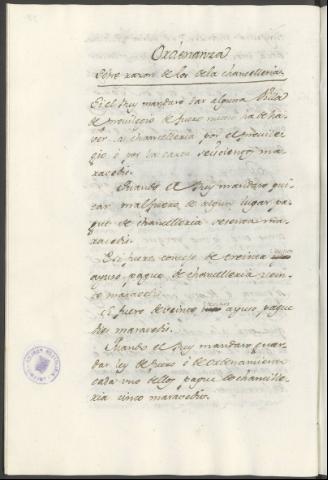 Ordenanza
Sobre razon de los de la chancelleria
Si el Rey mandare dar alguna
de previllegio de fuero nuevo ha de ha-
ver la chancelleria por el preville-
gio o por la carta seiscientos ma-
ravedis.
Quando el Rey mandare qui-
tar malfuero de algun lugar pa-
gue de chancelleria sesenta ma-
ravedis.
E si fuere concejo de treinta
ayuso pague de chancelleria vein-
te maravedis.
E si fuere de veinte ayuso pague
diez maravedis.
Quando el Rey mandare guar-
dar ley de fuero o de ordenamiento
cada uno dellos pague de chancille-
ria cinco maravedis.